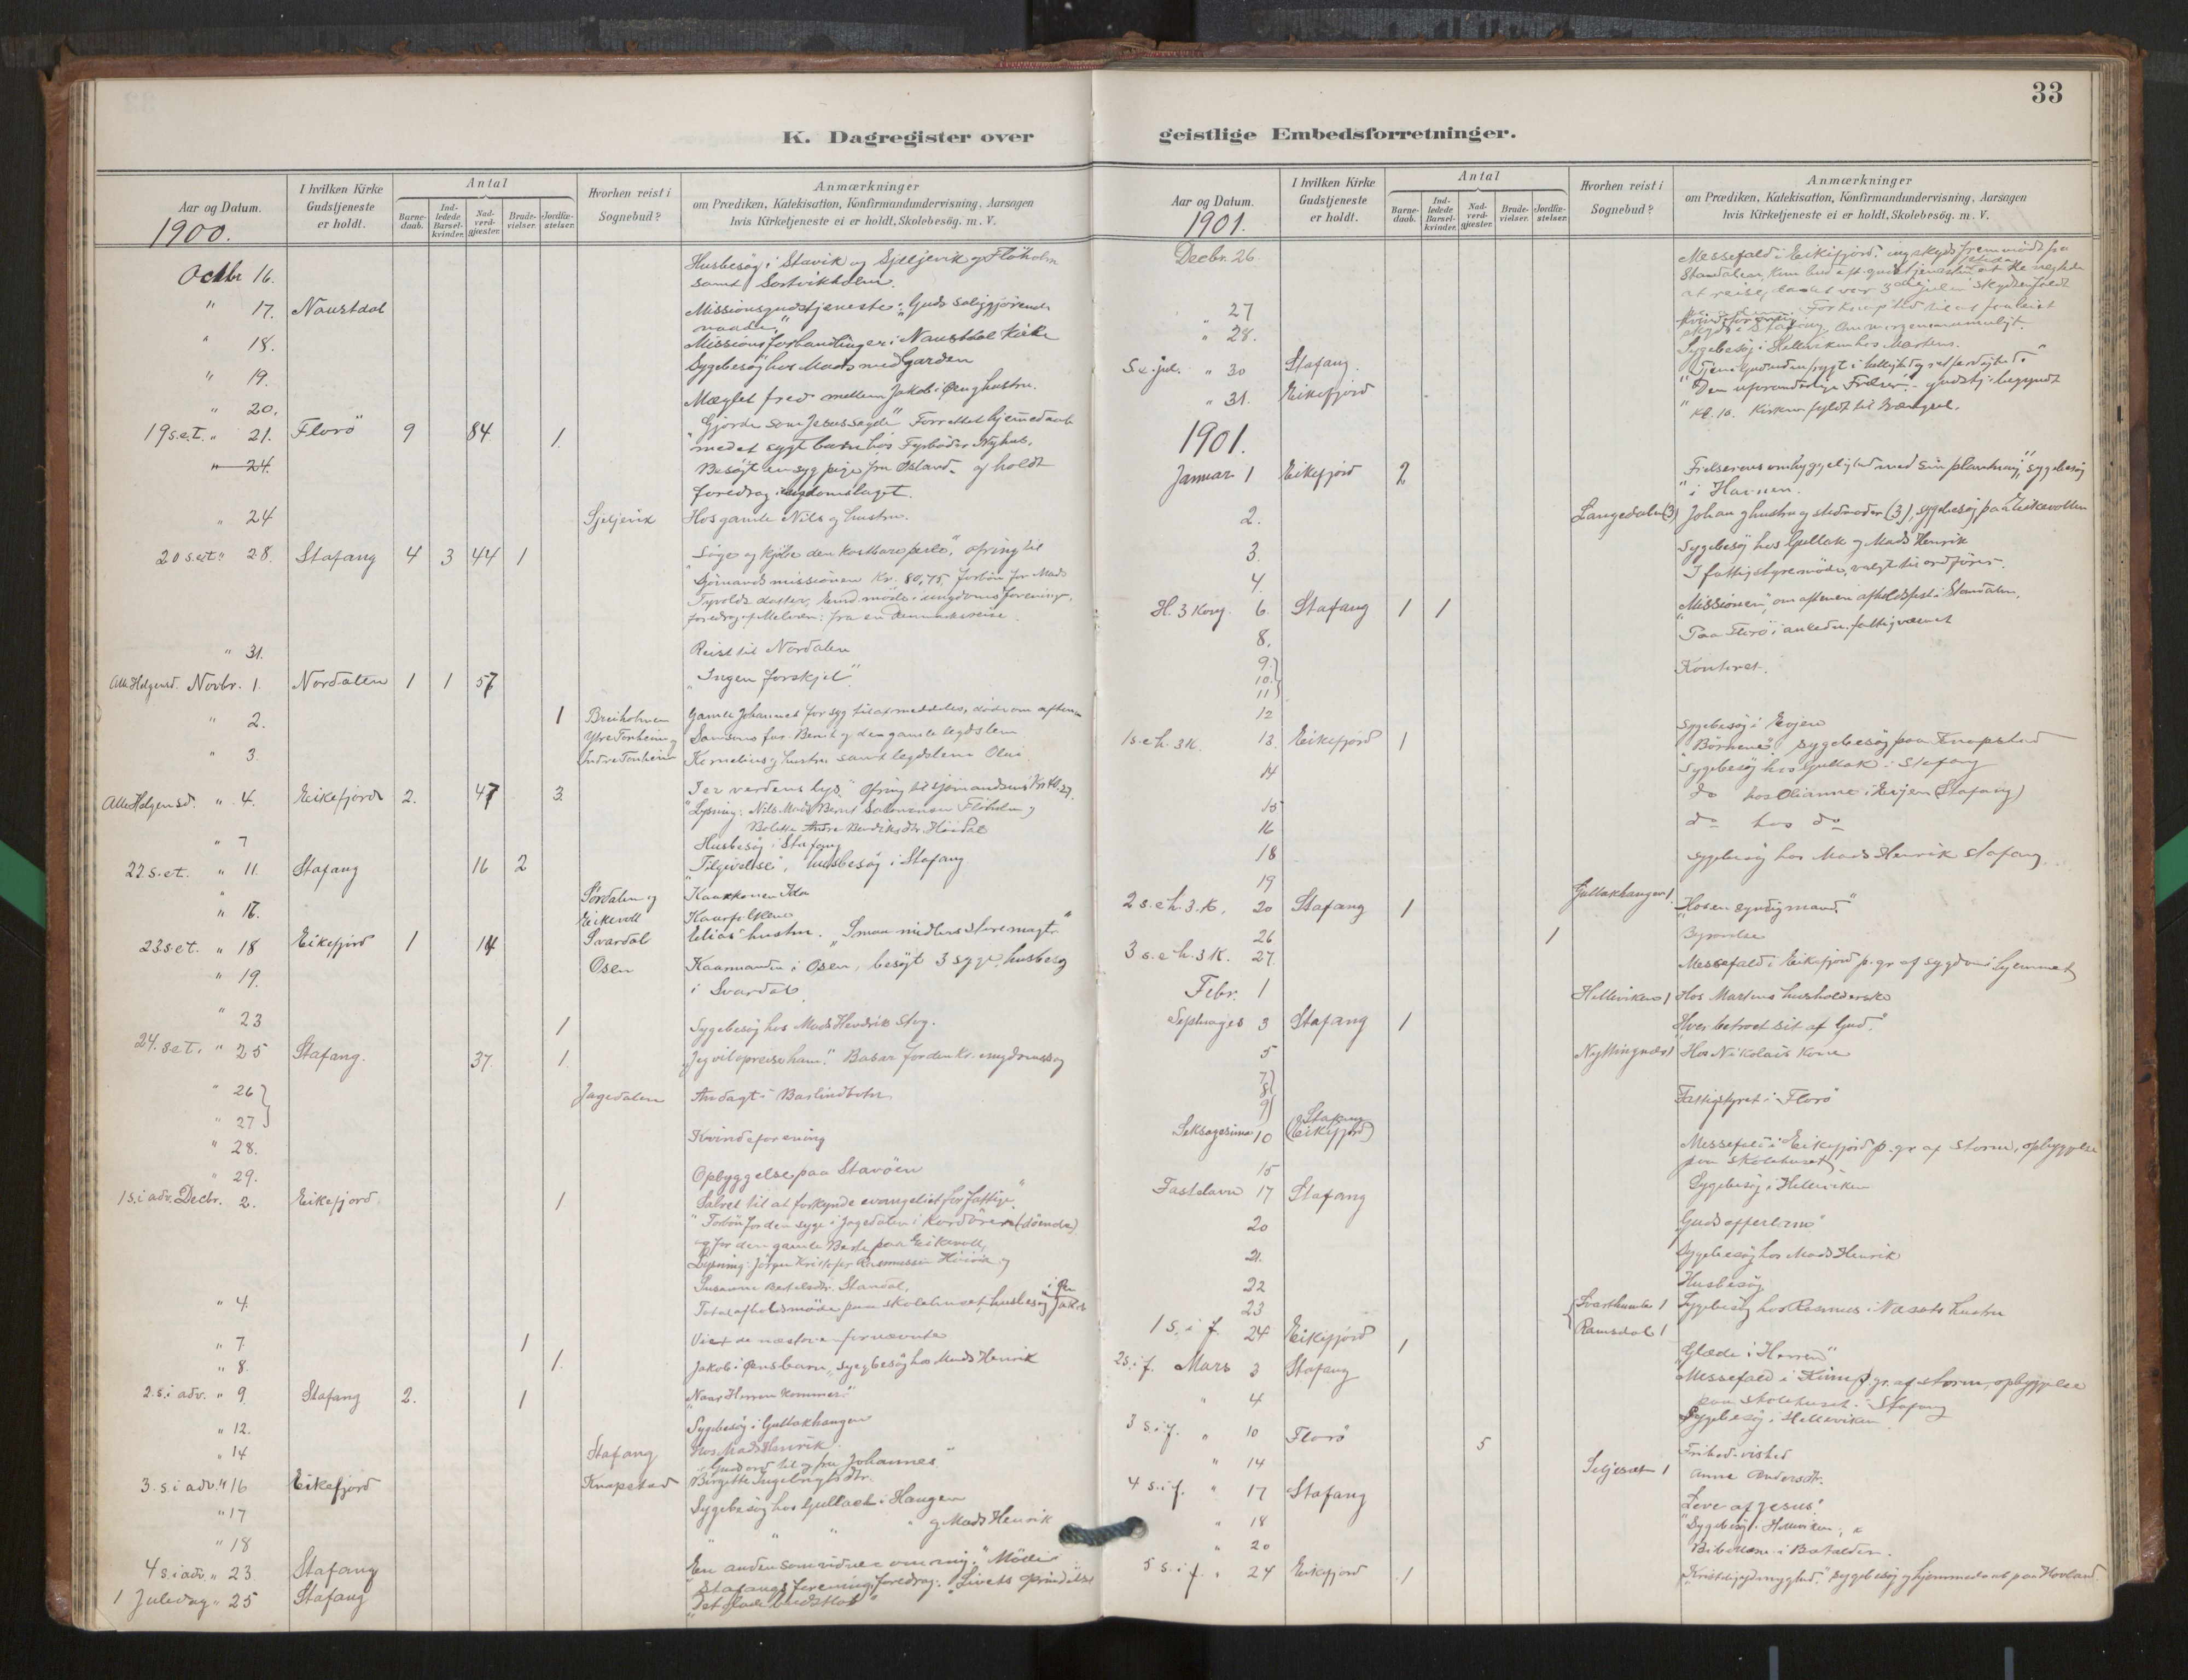 33
K. Dagregister over geistlige Embedsforretninger.
Aar og Datum.
I hvilken Kirke Gudstjeneste er holdt.
Antal
Barne-daab.
Ind-ledede Barsel-kvinder.
Nad-verd-gjæster.
Brude-vielser.
Jordfæ-stelser.
Hvorhen reist i Sognebud?
Anmærkninger
om Prædiken, Katekisation, Konfirmandundervisning, Aarsagen
hvis Kirketjeneste ei er holdt, Skolebesøg. m. V.
1900.
Octbr 16. Husbesøg i Stavik og Sjeljevik og Flöholm
samt
" 17. Naustdal Missionsgudstjeneste: "Guds saliggjørende
naade."
" 18. Missionsforhandlinger i Naustdal Kirke
" 19. Sygebesøg hos Mads med Garden
" 20. Mæglet fred mellem Jakob i Øen g hustru.
19 s.e.t. " 21. Florö 9 84 1. "Gjorde som Jesus sagde" Forrettet hjemmedaab
med et sygt barn hos Fyrböder Nyhus.
" 24. Besögt en syg pige fra Østland. og holdt
foredrag i ungdomslaget.
" 24 Sjeljevik Hos gamle Nils g hustru.
20 s.e.t. " 28. Stafang 4 3 44 1 "Søge og kjøbe den kostbare perle", ofring til
Sömandsmissionen Kr. 80,75, forbön for Mads
datter, møde i ungdomsforening,
foredrag
" 31. Reist til Nordalen
Alle Helgensd. Novbr. 1. Nordalen 1 1 57 "Ingen forskjel"
" 2. 1 Breiholmen Gamle Johannes for syg til at meddeles, døde om aftenen
Ytre Tonheim g Samsons fru Berit g den gamle legdslem
" 3 Indre Tonheim Kornelius g hustru samt legdslem Olai
Alle Helgensd. " 4. Eikefjord 2. 47 3. "I er verdens lys." Ofring til sjömandsm.
Lysning: Nils Mads Bernt Salomonsen Flöholm g
Bolette Andre Bendiksdtr Höidal
" 7 Husbesøg i Stafang
22. s.e.t. " 11. Stafang 16 2 "Tilgivelse", husbesøg i Stafang.
" 16. Sördalen g Kaarkonen Ida
Eikevoll
23 s.e.t. " 18 Eikefjord 1 14 Svardal Elias' hustru. "Smaa midlers store magt."
" 19. Osen Kaarmanden i Osen, besögt 3 syge, husbesøg
i Svardal.
" 23 1 Sygebesøg hos Mads Hendrik Stvg.
24. s.e.t. " 25 Stafang. 37. 1. "Jeg vil opreise ham." Basar for den kr. ungdomssag
" 26
" 27 Jagedalen Andagt i Barlindbotn
" 28. Kvindeforening
" 29. Opbyggelse paa Stavöen
1 s. i adv. Decbr. 2. Eikefjord 1 "Salvet til at forkynde evangeliet for fattige."
Forbön for den syge i Jagedalen i (döende)
g for den gamle Berte paa Eikevoll,
Lysning: Jörgen Kristofer Rasmussen g
Susanne Bertelsdtr. Standal.
" 4. Totalafholdsmøde paa skolehuset, husbesøg i Øen Jakob
" 7. 1 Viet de næstovenfornævnte
" 8. 1. Jakob i Øens barn, sygebesøg hos Mads Henrik
2. s. i adv. " 9 Stafang 2. 1 "Naar Herren kommer."
" 12. Sygebesøg i Gullakhaugen
" 14 Stafang Hos Mads Henrik.
3. s. i adv. " 16 Eikefjord Knapstad "Guds ord til og fra Johannes"
Birgitte Ingebrigtsdtr.
" 17 Sygebesøg hos Gullack i Haugen
" 18 " " " g Mads Henrik
4 s. i adv. " 23 Stafang "En anden som vidner om mig." Møde i
Stafangs forening, foredrag: "Livets oprindelse
1 Juledag " 25 Stafang "Det glade budskab"
Aar og Datum.
I hvilken Kirke Gudstjeneste er holdt.
Antal
Barne-daab.
Ind-ledede Barsel-kvinder.
Nad-verd-gjæster.
Brude-vielser.
Jordfæ-stelser.
Hvorhen reist i Sognebud?
Anmærkninger
om Prædiken, Katekisation, Konfirmandundervisning, Aarsagen
hvis Kirketjeneste ei er holdt, Skolebesög. m. V.
1901.
Decbr. 26 Messefald i Eikefjord, ing. skyds fremmödt fra
Standalen, kom bud eft. gudstjenesten, at de negtede
at reise, da det var 3die juledag
" 27 Kvindeforening
" 28. Sygebesøg i Helleviken hos Martins.
S. e. jul. " 30 Stafang. "Tjene Gud uden frygt i hellighed og retfærdighed."
" 31. Eikefjord "Den uforanderlige Frelser" gudstj. begyndt
Kl. 10. Kirken fyldt til trængsel.
1901.
Januar 1 Eikefjord 2 "Frelserens omhyggelighed med sin plantning", sygebesøg
i Havnen.
2. Langedalen (3) Johan g hustru g stedmoder (3), sygebesøg paa Eikevollen
3. Sygebesøg hos Gullak g Mads Henrik
4. I fattigstyremöde, valgt til ordförer.
H. 3 Kong. 6. Stafang 1 1 "Missionen", om aftenen afholdsfest i Standalen.
8. Paa Florö i anledn. fattigvæsenet
9.
10.
11 Kontoret.
12 Sygebesøg i Eojen
1 s. e. h. 3 K. 13. Eikefjord 1 "Börnene" sygebesøg paa Knapstad
14 Sygebesøg hos Gullak i Stafang
15 do hos Olianne i Evjen (Stafang)
16 do hos do
18 Sygebesøg hos Mads Henrik Stafang.
19 Gullakhaugen 1.
2 s. e. h. 3. K. 20 Stafang 1 "Hos en syndig mand."
26 1 Begravelse
3 s. e. h. 3 K. 27. Messefald i Eikefjord p. gr. af sygdom i hjemmet
Febr. 1 Helleviken 1 Hos Martins husholderske
Septuages 3 Stafang 1 "Hver betroet sit af Gud."
5 Nyttingnæs 1 Hos Nikolais Kone
7
8
9 Fattigstyret i Florö
Seksagesima 10 Stafang (Eikefjord) Messefald i Eikefjord p. gr. af storm, opbyggelse
paa skolehuset
15 Sygebesøg i Helleviken
Fastelavn 17 Stafang "Guds offerlam"
20 Sygebesøg hos Mads Henrik
21. Husbesøg
22 Svarthumle 1 Sygebesøg hos Rasmus i Næsets hustru
23 Ramsdal 1
1 S. i f. 24 Eikefjord 1 "Glæde i Herren"
2 s. i f. Mars 3 Stafang Messefald i Kinn p. gr. af storm, opbyggelse
paa skolehuset i Stafang
" 4 Sygebesøg i Helleviken
3 s. i f. " 10 Florö 5 Frihed. vished
" 14 Seljeset 1 Anne Andersdtr.
4 s. i f. " 17 Stafang "Leve af Jesus"
" 18 Sygebesøg i Helleviken
" 20 Bibellæsn. i Batalden.
5 s. i f. " 24 Eikefjord 1 sygebesøg g hjemmedaab paa Hovland.